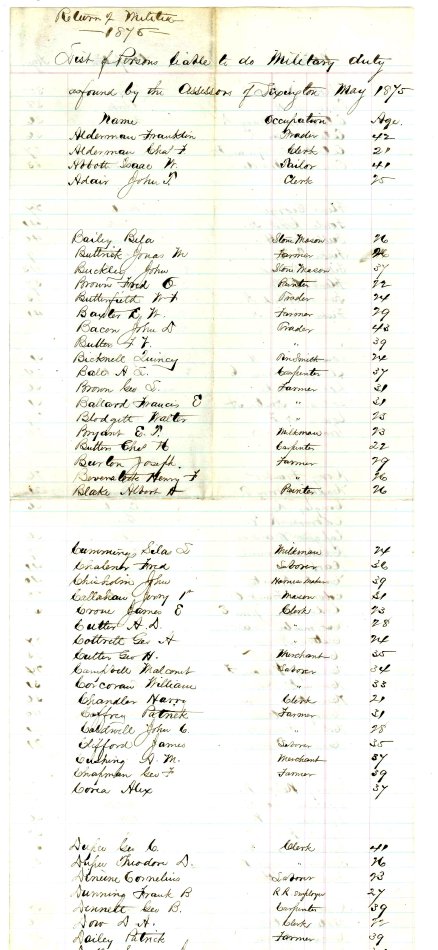 Return of Militia
1875
List of Persons liable to do Military duty
as found by the Assessors of Lexington May 1875
Name Occupation Age.
Alderman Franklin Trader 42
Alderman Cha F Clerk 21
Abbott Isaac W. Tailor 41
Adair John T. Clerk 25
Bailey Bela Stone Mason 26
Buttrick Jonas M Farmer
Buckley John Stone Mason 37
Brown Fred O Painter 22
Butterfield W F Trader 24
Baxter E. W. Farmer 29
Bacon John D Trader 43
Butters F. V. " 39
Bicknell Quincy Pen Smith 24
Bald A S. Carpenter 37
Brown Geo S. Farmer 31
Ballard Francis E " 31
Blodgett Walter " 23
Bryant E. T. Milkman 23
Butters Chas H Carpenter 22
Burton Joseph Farmer 29
Bevenstock Henry F " 26
Blake Albert A Painter 26
Cummings Sila S Milkman 24
Fred Laborer 36
Chisholm John Harness Maker 39
Callahan Jerry 1st Mason 31
Crone James E Clerk 23
Cutter A. D. " 28
Cottrell Geo A " 24
Cutter Geo H. Merchant 35
Campbell Malcomb Laborer 34
Corcoran William " 33
Chandler Harry Clerk 21
Caffrey Patrick Farmer 31
Caldwell John C. " 28
Clifford James Laborer 35
Cushing G. M. Merchant 37
Chapman Geo F Farmer 39
Corea Alex 37
Dupee Geo C. Clerk 41
Dupee Theodore D. " 26
Dineene Cornelius Laborer 23
Dunning Frank B R R Employee 27
Dennett Geo B. Carpenter 39
Dow D A. Clerk 22
Dailey Patrick Farmer 39